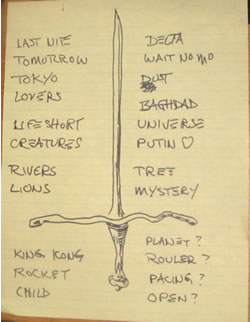 LAST NITE
TOMORROW
TOKYO
LOVERS
LIFE SHORT
CREATURES
RIVERS
LIONS
KING KONG
ROCKET
CHILD
DELTA
WAIT NO MO
DUST
BAGHDAD
UNIVERSE
PUTIN ♡
TREE
MYSTERY
PLANET?
ROULER?
PACING?
OPEN?